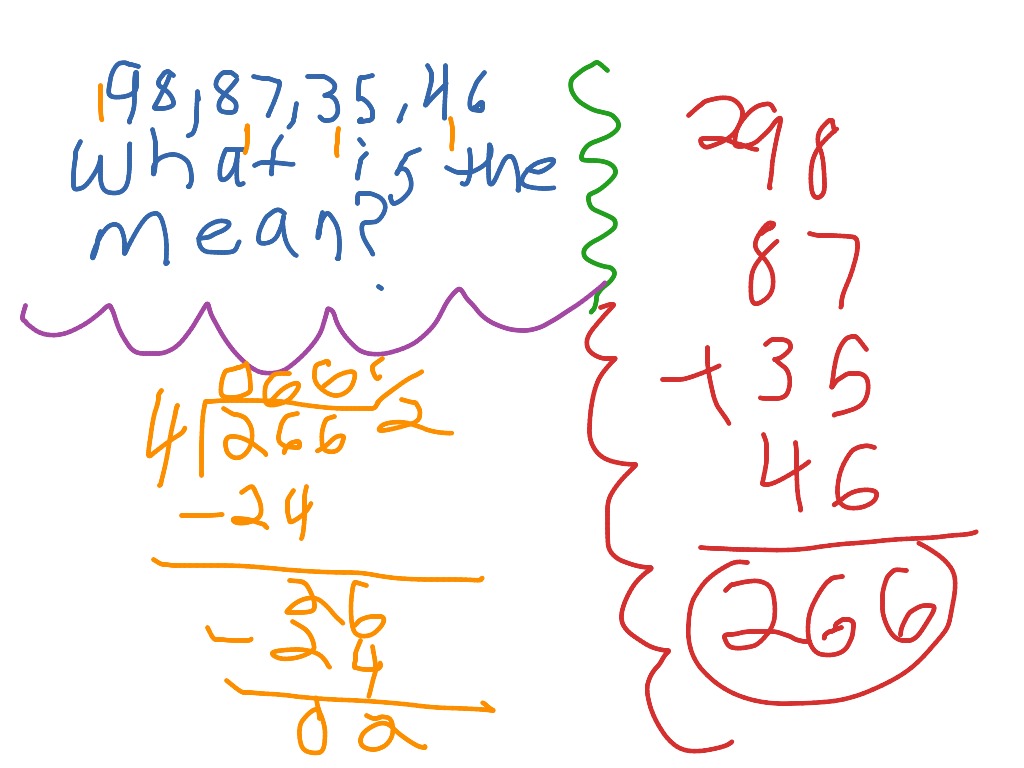 98, 87, 35, 46
What is the
mean?
066 r 2
4 266
- 24
26
- 24
02
2
98
87
+ 35
46
266